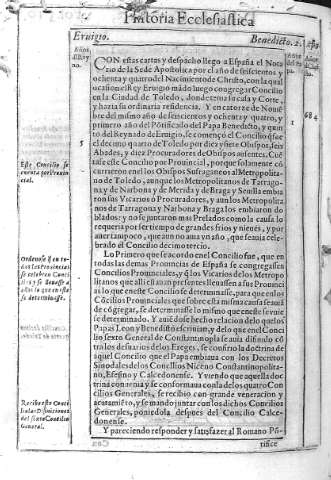 Historia Ecclesiastica
Eruigio. Benedicto. 2.
CON estas cartas y despacho llego a España el Nota
rio de la Sede Apostolica por el año de seiscientos y
ochenta y quatro del Nacimiento de Christo, con la qual
ocasion el Rey Eruigio mãdo luego congregar Concilio
en la Ciudad de Toledo, donde tenia su casa y Corte,
y hazia su ordinaria residencia. Y en catorze de Nouiẽ
bre del mismo año de seiscientos y ochenta y quatro, y
primero año del Põtificado del Papa Benedicto, y quin
to del Reynado de Eruigio, se començò el Concilio q̃ fue
el decimo quarto de Toledo por diez y siete Obispos, seis
Abades, y diez Procuradores de Obispos ausentes. Cuẽ
tase este Concilio por Prouincial, porque solamente cõ
currieron en el los Obispos Sufraganeos al Metropolita
no de Toledo, aunque los Metropolitanos de Tarrago-
na y de Narbona y de Merida y de Braga y Seuilla embia
ron sus Vicarios o Procuradores, y aun los Metropolita
nos de Tarragona y Narbona y Braga los embiaron do
blados: y no se juntaron mas Prelados como la causa lo
requeria por ser tiempo de grandes frios y nieues, y por
auer tampoco, que aun no auia vn año, que se auia cele-
brado el Concilio decimo tercio.
Lo Primero que se acordo en el Concilio fue, que en
todas las demas Prouincias de España se congregassẽ
Concilios Prouinciales, y q̃ los Vicarios de los Metropo
litanos que alli estauan presentes lleuassen a sus Prouinci
as lo que en este Concilio se determinasse, para que en los
Cõcilios Prouinciales que sobre esta misma causa se auiã
de cõgregar, se determinasse lo mismo que en este se auie
se determinado. Y auiẽdose hecho relacion de lo que los
Papas Leon y Benedicto escriuian, y de lo que en el Conci
lio sexto General de Constantinopla se auia difinido cõ
tra los desuarios de los Ereges, se confirmo la doctrina de
aquel Concilio que el Papa embiaua con los Decretos
Sinodales de los Concilios Niceno Constantinopolita-
no, Efesino y Calcedonense. Y viendo que aquella doc
trina conuenia y se conformaua con la de los quatro Con
cilios Generales, se recibio con grande veneracion y
acatamiẽto, y se mando juntar con los dichos Concilios
Generales, poniẽdola despues del Concilio Calce-
donense.
Y pareciendo responder y satisfazer al Romano Põ-
tifice
5
1
684
Este Concilio se
cuenta por Prouin
cial.
Ordenose q̃ en to-
das las Prouincias
Recibese este Conci
lio
General.